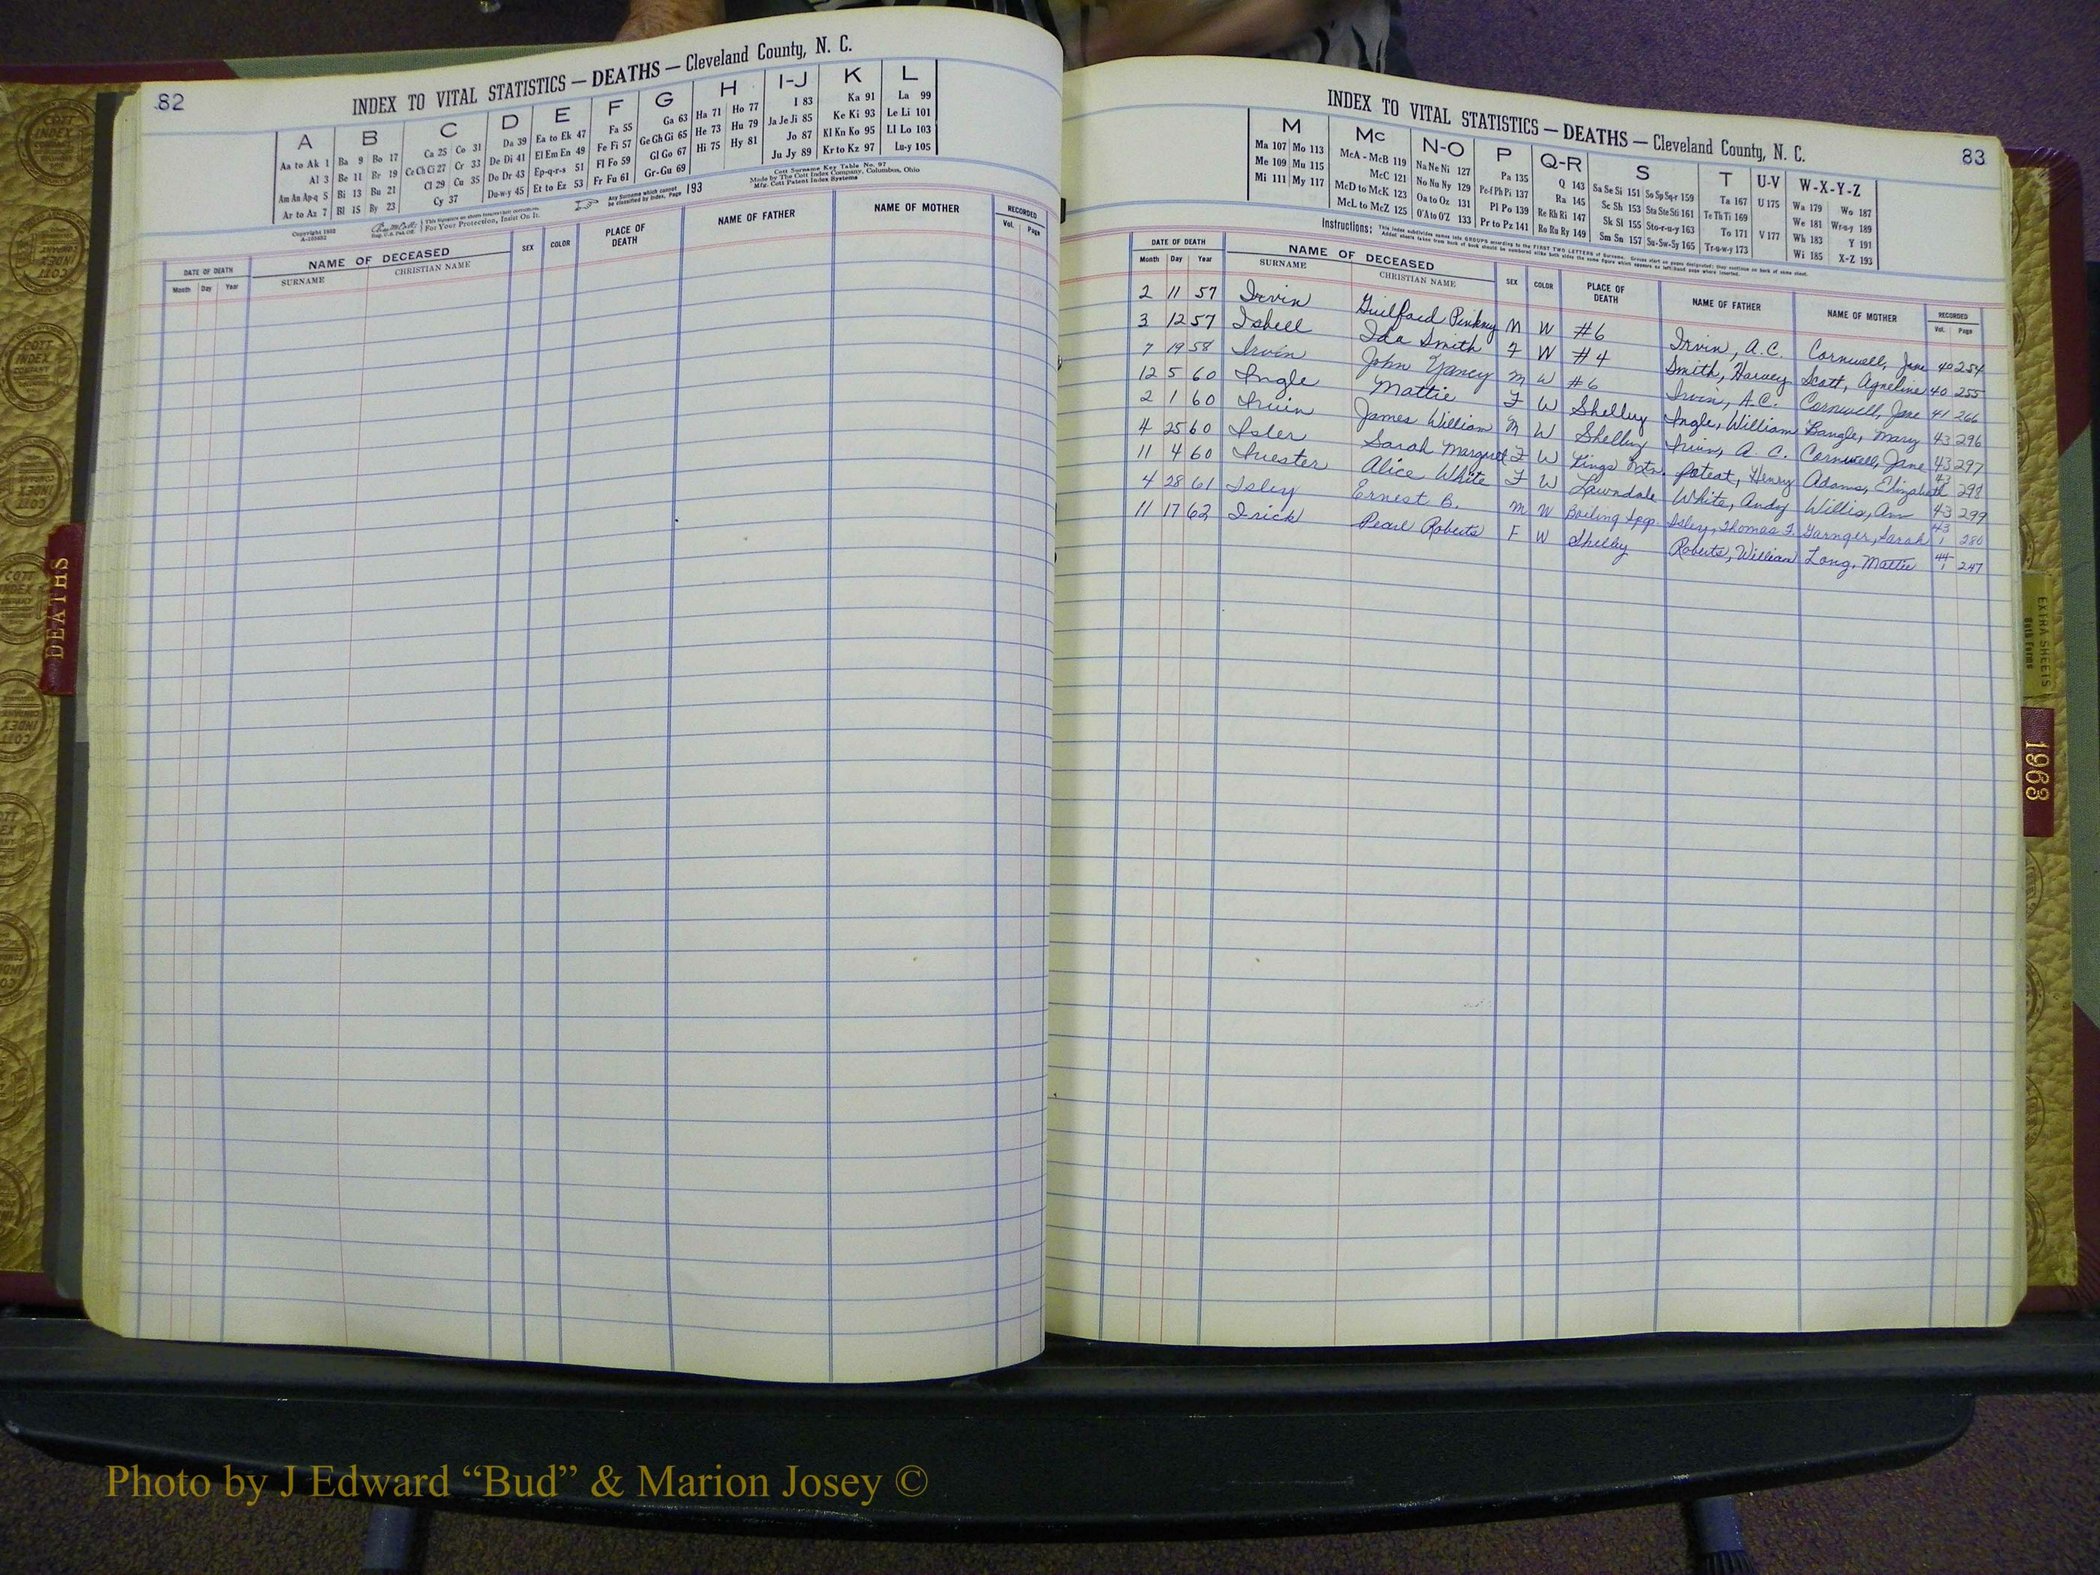 82
INDEX TO VITAL STATISTICS — DEATHS — Cleveland County, N. C.
A B C D E F G H I-J K L
Aa to Ak 1 Ba 9 Bo 17 Ca 25 Co 31 Da 39 Ea to Ek 47 Fa 55 Ga 63 Ha 71 Ho 77 I 83 Ka 91 La 99
Al 3 Be 11 Br 19 Ce Ch Ci 27 Cr 33 De Di 41 El Em En 49 Fe Fi 57 Ge Gh Gi 65 He 73 Hu 79 Ja Je Ji 85 Ke Ki 93 Le Li 101
Am An Ap-q 5 Bi 13 Bu 21 Cl 29 Cu 35 Do Dr 43 Ep-q-r-s 51 Fl Fo 59 Gl Go 67 Hi 75 Hy 81 Jo 87 Kl Kn Ko 95 Ll Lo 103
Ar to Az 7 Bl 15 By 23 Cy 37 Du-w-y 45 Et to Ez 53 Fr Fu 61 Gr-Gu 69 Ju Jy 89 Kr to Kz 97 Lu-y 105
Any Surname which cannot be classified by Index, Page 193
Cott Surname Key Table No. 97
Made by The Cott Index Company, Columbus, Ohio
Mfg. Cott Patent Index Systems
For Your Protection, Insist On It.
DATE OF DEATH NAME OF DECEASED SEX COLOR PLACE OF DEATH NAME OF FATHER NAME OF MOTHER RECORDED
Month Day Year SURNAME CHRISTIAN NAME Vol. Page
INDEX TO VITAL STATISTICS — DEATHS — Cleveland County, N. C.
83
M Mc N-O P Q-R S T U-V W-X-Y-Z
Ma 107 Mo 113 McA - McB 119 Na Ne Ni 127 Pa 135 Q 143 Sa Se Si 151 So Sp Sq-r 159 Ta 167 U 175 Wa 179 Wo 187
Me 109 Mu 115 McC 121 No Nu Ny 129 Pe-f Ph Pi 137 Ra 145 Sc Sh 153 Sta Ste Sti 161 Te Th Ti 169 We 181 Wr-u-y 189
Mi 111 My 117 McD to McK 123 Oa to Oz 131 Pl Po 139 Re Rh Ri 147 Sk Sl 155 Sto-r-u-y 163 To 171 V 177 Wh 183 Y 191
McL to McZ 125 O'A to O'Z 133 Pr to Pz 141 Ro Ru Ry 149 Sm Sn 157 Su-Sw-Sy 165 Tr-u-w-y 173 Wi 185 X-Z 193
Instructions:
DATE OF DEATH NAME OF DECEASED SEX COLOR PLACE OF DEATH NAME OF FATHER NAME OF MOTHER RECORDED
Month Day Year SURNAME CHRISTIAN NAME Vol. Page
2 11 57 Irvin Guilford Pinkney M W #6 Irvin, A.C. Cornwell, Jane 40 254
3 12 57 Isbell Ida Smith F W #4 Smith, Harvey Scott, Agneline 40 255
7 19 58 Irvin John Yancy M W #6 Irvin, A.C. Cornwell, Jane 41 266
12 5 60 Ingle Mattie F W Shelby Ingle, William Bangle, Mary 43 296
2 1 60 Irvin James William M W Shelby Irvin, A. C. Cornwell, Jane 43 297
4 25 60 Isler Sarah Margret F W Kings Mtn. Poteat, Henry Adams, Elizabeth 43 298
11 4 60 Iuester Alice White F W Lawndale White, Andy Willis, An 43 299
4 28 61 Isley Ernest B. M W Boiling Spgs. Isley, Thomas F. Sarah 43 1 280
11 17 62 Irick Pearl Roberts F W Shelby Roberts, William Long, Mattie 44 1 247
DEATHS
EXTRA SHEETS
Both Forms
1963
Photo by J Edward “Bud” & Marion Josey ©